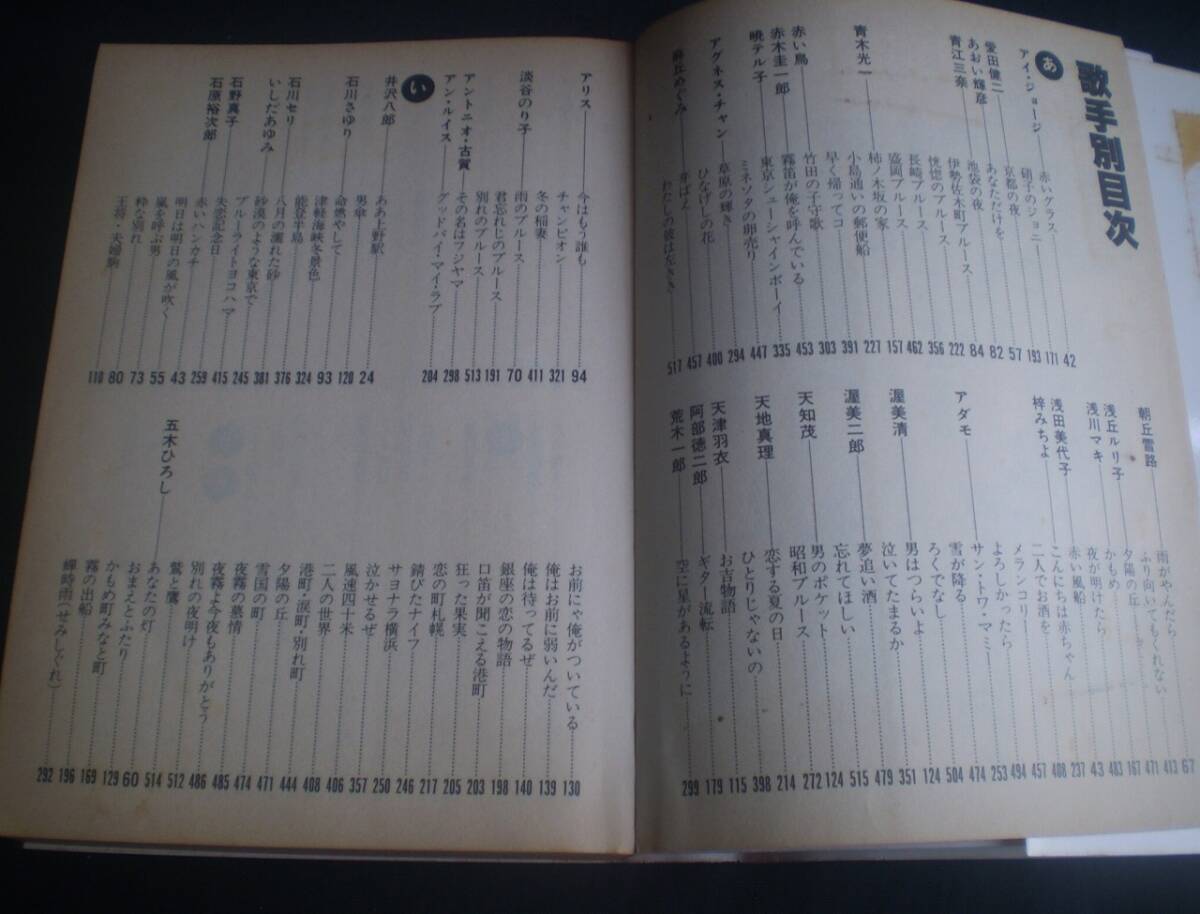 歌手別目次
あ
アイ・ジョージ 赤いグラス 42
硝子のジョニー 171
愛田健二 京都の夜 193
あおい輝彦 あなただけを 57
青江三奈 池袋の夜 82
伊勢佐木町ブルース 84
恍惚のブルース 222
長崎ブルース 356
盛岡ブルース 462
青木光一 柿ノ木坂の家 157
小島通いの郵便船 227
早く帰ってコ 391
赤い鳥 竹田の子守歌 303
赤木圭一郎 霧笛が俺を呼んでいる 453
暁テル子 東京シューシャインボーイ 335
ミネソタの卵売り 447
アグネス・チャン 草原の輝き 294
ひなげしの花 400
麻丘めぐみ 芽ばえ 457
わたしの彼は左きき 517
朝丘雪路 雨がやんだら 67
ふり向いてもくれない 413
浅丘ルリ子 夕陽の丘 471
浅川マキ かもめ 167
夜が明けたら 403
浅田美代子 赤い風船 43
梓みちよ こんにちは赤ちゃん 237
二人でお酒を 408
メランコリー 457
よろしかったら 494
アダモ サン・トワ・マミー 253
雪が降る 474
ろくでなし 504
渥美清 男はつらいよ 124
泣いてたまるか 351
渥美二郎 夢追い酒 479
忘れてほしい 515
天知茂 男のポケット 124
昭和ブルース 272
天地真理 恋する夏の日 214
ひとりじゃないの 398
天津羽衣 お吉物語 115
阿部徳二郎 ギター流転 179
荒木一郎 空に星があるように 299
アリス 今はもう誰も 94
チャンピオン 321
冬の稲妻 411
淡谷のり子 雨のブルース 70
君忘れじのブルース 191
別れのブルース 513
アントニオ・古賀 その名はフジヤマ 298
アン・ルイス グッドバイ・マイ・ラブ 204
い
井沢八郎 ああ上野駅 24
石川さゆり 男傘 120
命燃やして 93
津軽海峡冬景色 324
能登半島 376
石川セリ 八月の濡れた砂 381
いしだあゆみ 砂漠のような東京で 245
ブルーライトヨコハマ 415
石野真子 失恋記念日 259
石原裕次郎 赤いハンカチ 43
明日は明日の風が吹く 55
嵐を呼ぶ男 73
粋な別れ 80
王将・夫婦駒 110
お前にゃ俺がついている 130
俺はお前に弱いんだ 139
俺は待ってるぜ 140
銀座の恋の物語 198
口笛が聞こえる港町 203
狂った果実 205
恋の町札幌 217
錆びたナイフ 246
サヨナラ横浜 250
泣かせるぜ 357
風速四十米 406
二人の世界 408
港町・涙町・別れ町 444
夕陽の丘 471
雪国の町 474
夜霧の慕情 485
夜霧よ今夜もありがとう 486
別れの夜明け 512
鷲と鷹 514
五木ひろし あなたの灯 60
おまえとふたり 129
かもめ町みなと町 169
霧の出船 196
蟬時雨(せみしぐれ) 292